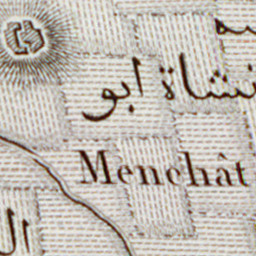 نشاة ابو
Menchât
ال